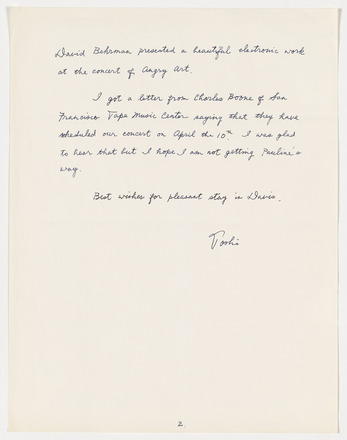 David Behrman presented a beautiful electronic work
at the concert of Angry Art.
I got a letter from Charles Boone of San
Francisco Tape Music Center saying that they have
scheduled our concert on April the 10th I was glad
to hear that but I hope I am not getting Pauline's
way.
Best wishes for pleasant stay in Davis.
Toshi
2.